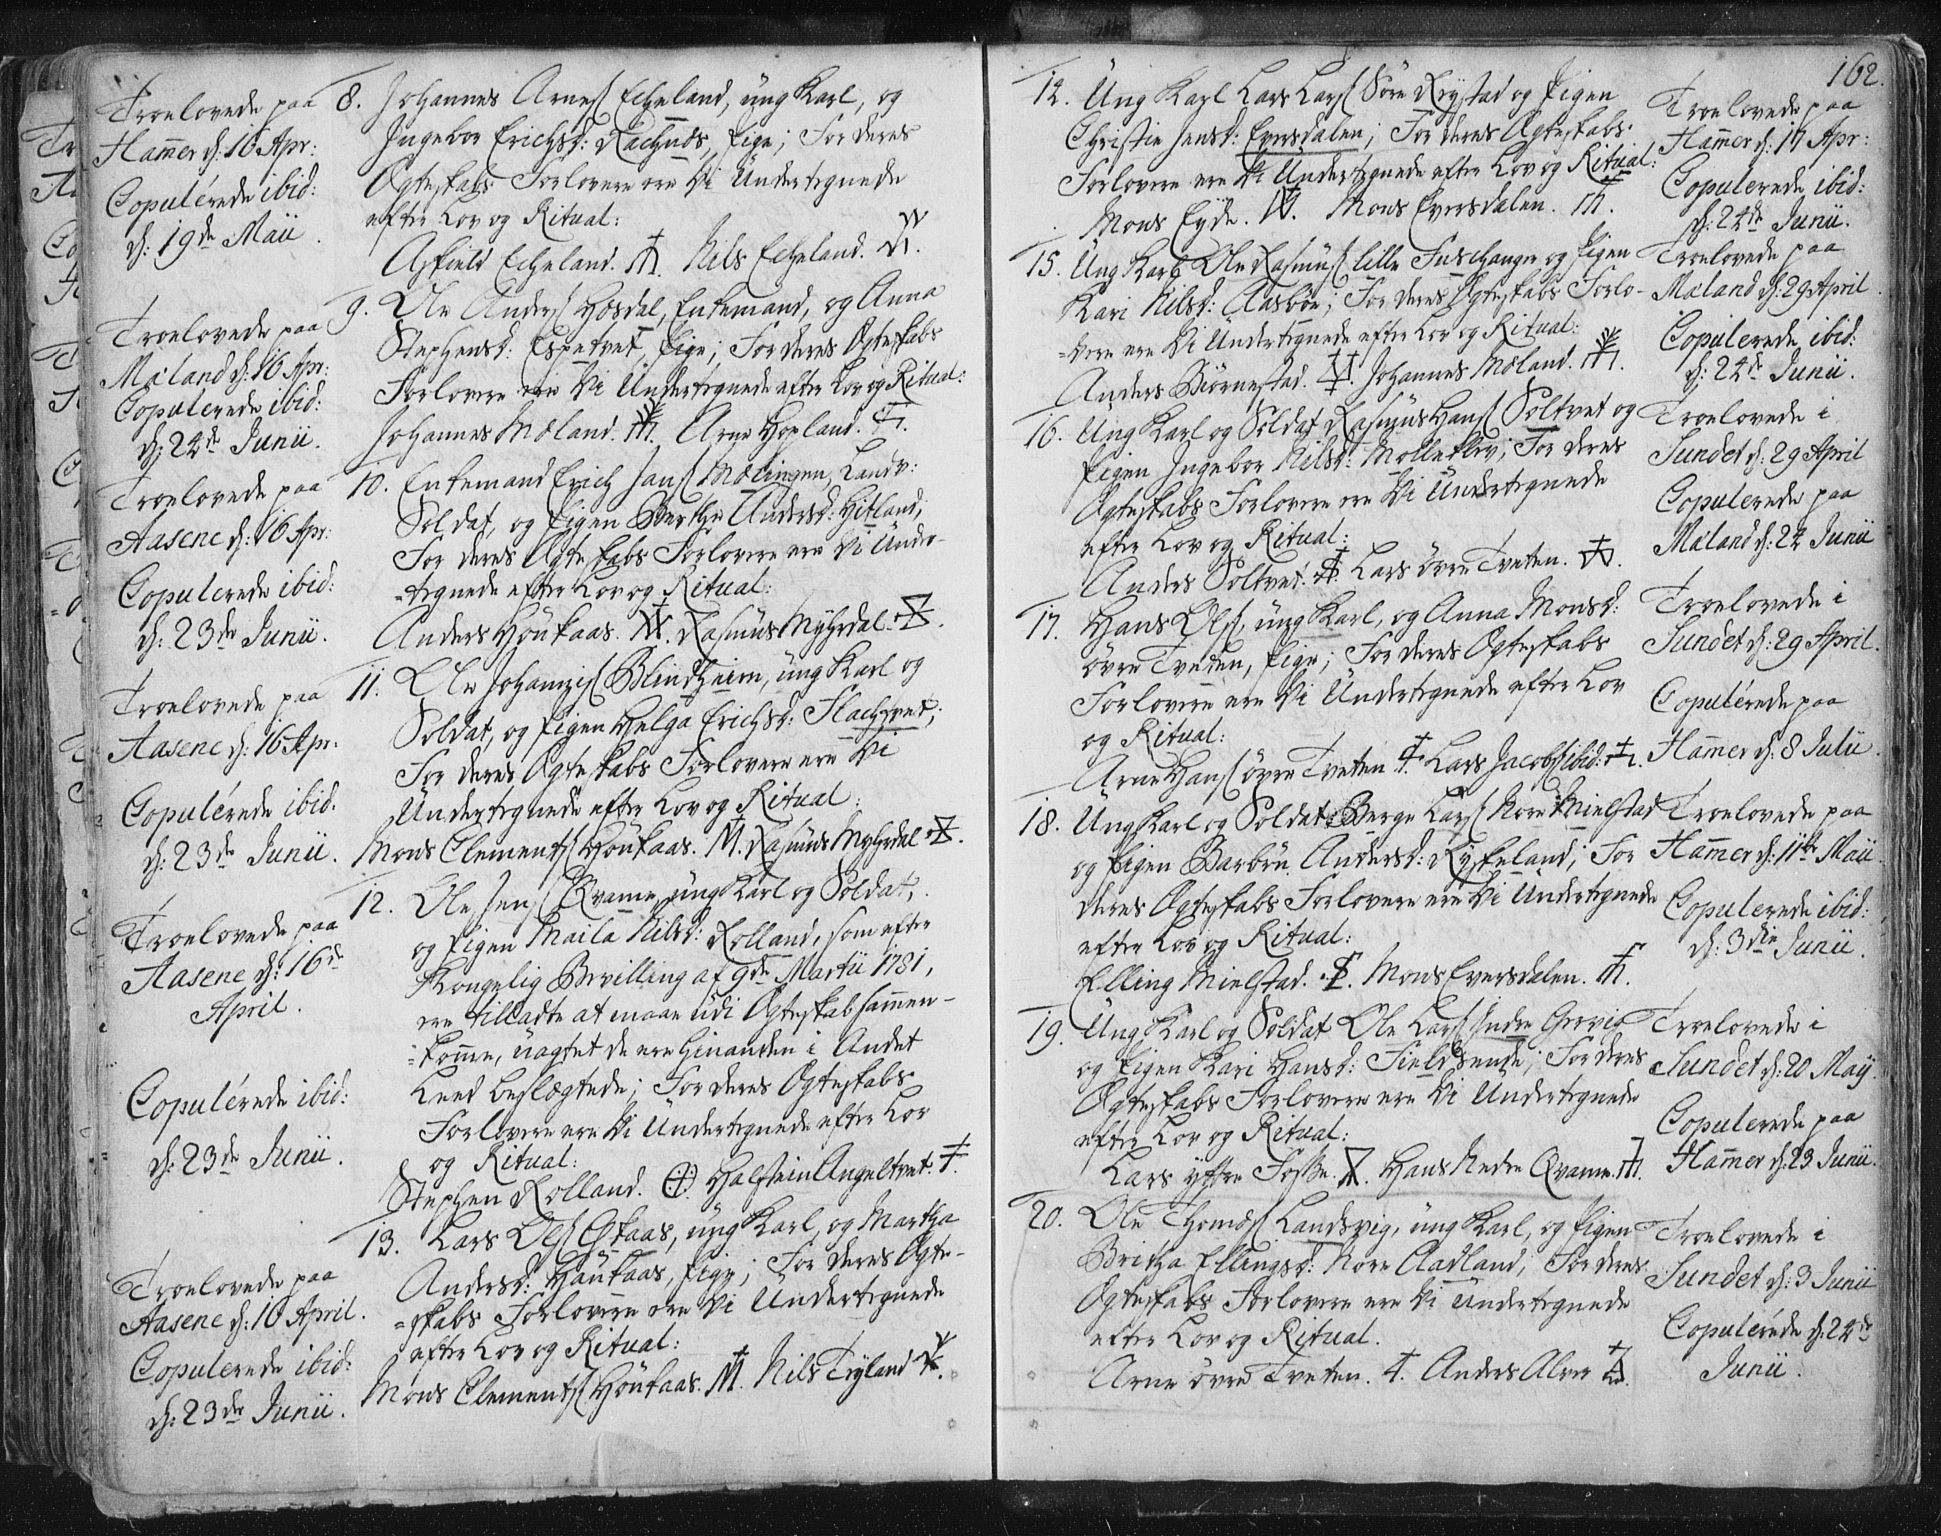 Troelovede paa
Hamer d: 16 Apr:
Copulerede ibid:
d: 19de Maii.
8. Johannes Arnes Echeland, ung Karl, og
Ingebor Erichsd: Pige; For deres
Ægteskabs Forlovere ere Vi Undertegnede
efter Lov og Ritual:
Asfield Echeland. Nils Echeland.
Troelovede paa
Mæland d: 16 Apr:
Copulerede ibid:
d: 24de Junii.
9. Ole Anders Hosdal, Enkemand, og Anna
Stephensd: Espetvet, Pige; For deres Ægteskabs
Forlovere ere Vi Undertegnede efter Lov og Ritual:
Johannes Mæland. Arne Hopland.
Troelovede paa
Aasene d: 16 Apr:
Copulerede ibid:
d: 23de Junii.
10. Enkemand Erich Jans Mælingen, Landv:
Soldat, og Pigen Berthe Andersd: Hitland;
For deres Ægteskabs Forlovere ere Vi Under-
=tegnede efter Lov og Ritual:
Anders Houkaas. Rasmus Myhrdal.
Troelovede paa
Aasene d: 16 Apr:
Copulerede ibid.
d: 23de Junii.
11. Ole Blindheim, ung Karl og
Soldat, og Pigen Helga Erichsd: Flachtvet;
For deres Ægteskabs Forlovere ere Vi
Undertegnede efter Lov og Ritual:
Mons Clements Houkaas. Rasmus Myhrdal.
Troelovede paa
Aasene d: 16de
April.
Copulerede ibid:
d: 23de Junii.
12. Ole Jens Qvame, ung Karl og Soldat,
og Pigen Maila Nilsd: Rolland, som efter
Kongelig Bevilling af 9de Martii 1781,
ere tilladte at maae udi Ægteskab sammen-
=komme, uagtet de ere hinanden i Andet
Leed beslægtede; For deres Ægteskabs
Forlovere ere Vi Undertegnede efter Lov
og Ritual:
Stephen Rolland. Halstein Angeltvet.
Troelovede paa
Aasene d: 16 April.
Copulerede ibid:
d: 23de Junii.
13. Lars Ols Askaas, ung Karl, og Martha
Andersd: Haukaas, Pige; For deres Ægte-
=skabs Forlovere ere Vi Undertegnede
efter Lov og Ritual:
Mons Clements Houkaas. Nils Tryland
162.
14. Ung Karl Lars Lars Søre Rystad og Pigen
Christie Jensd: Eversdalen; For deres Ægteskabs
Forlovere ere Vi Undertegnede efter Lov og Ritual:
Mons Eyde. Mons Eversdalen.
Troelovede paa
Hamer d: 17 Apr:
Copulerede ibid:
d: 24de Junii.
15. Ung Karl Ole Rasmus lille Fuschanger og Pigen
Kari Nilsd: Aasbøe; For deres Ægteskabs Forlo-
=vere ere Vi Undertegnede efter Lov og Ritual:
Anders Biørnestad. Johannes Mæland.
Troelovede paa
Mæland d: 29 April.
Copulerede ibid:
d: 24de Junii.
16. Ung Karl og Soldat Rasmus Hans Soltvet og
Pigen Ingebor Nilsd: Mollekley; For deres
Ægteskabs Forlovere ere Vi Undertegnede
efter Lov og Ritual:
Anders Soltvet. Lars øvre Tveten.
Troelovede i
Sundet d: 29 April
Copulerede paa
Mæland d: 24 Junii
17. Hans Ols, ung Karl, og Anna Monsd:
øvre Tveten, Pige; For deres Ægteskabs
Forlovere ere Vi Undertegnede efter Lov
og Ritual:
Arne Hans øvre Tveten. Lars Jacobs ibid:
Troelovede i
Sundet d: 29 April.
Copulerede paa
Hamer d: 8 Julii.
18. Ung Karl og Soldat Berge Lars Nore Mielstad
og Pigen Barbru Andersd: Ryskeland; For
deres Ægteskabs Forlovere ere Vi Undertegnede
efter Lov og Ritual:
Elling Mielstad. Mons Eversdalen.
Troelovede paa
Hamer d: 11te Maii.
Copulerede ibid:
d: 3die Junii.
19. Ung Karl og Soldat Ole Lars Indre Grevig
og Pigen Kari Hansd: Fieldsende; For deres
Ægteskabs Forlovere ere Vi Undertegnede
efter Lov og Ritual:
Lars yttre Fosse. Hans Nedre Qvame.
Troelovede i
Sundet d: 20 Maij.
Copulerede paa
Hamer d: 23 Junii.
20. Ole Thomæs Landsvig, ung Karl, og Pigen
Britha Ellingsd: Nore Aadland; For deres
Ægteskabs Forlovere ere Vi Undertegnede
efter Lov og Ritual.
Arne øvre Tveten. Anders Alver
Troelovede i
Sundet d: 3 Junii
Copulerede d: 24de
Junii.